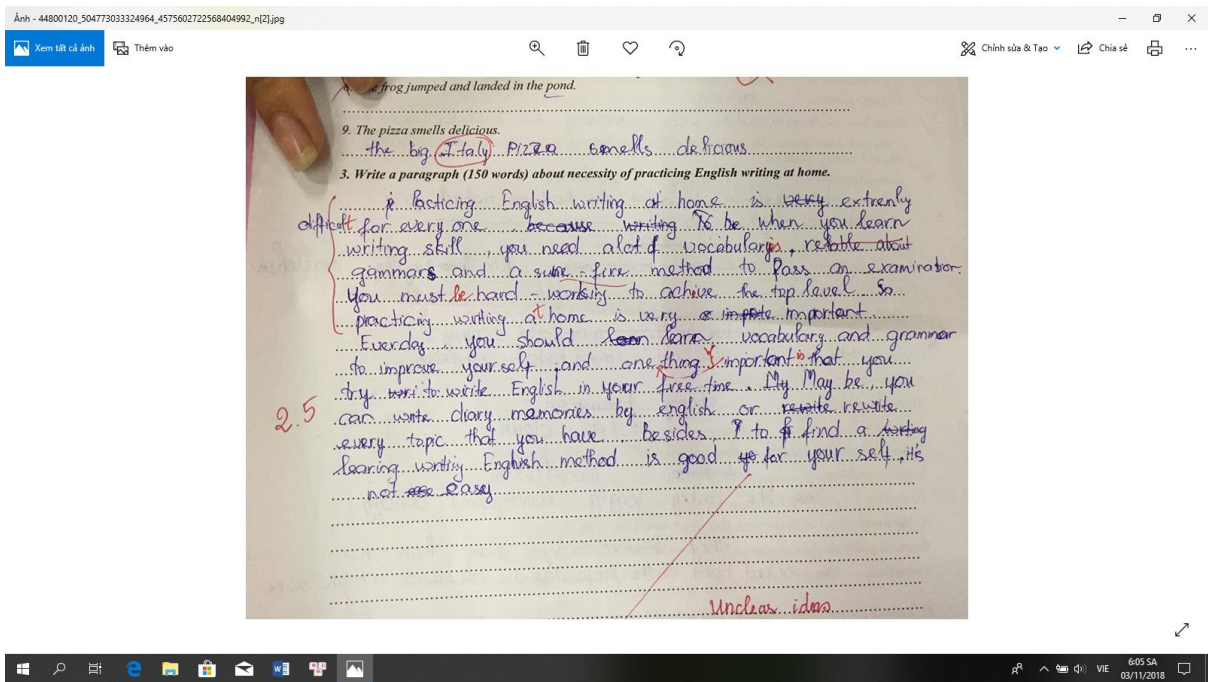 Ảnh - 44800120_504773033324964_4575602722568404992_n[2].jpg
Xem tất cả ảnh Thêm vào Chỉnh sửa & Tạo Chia sẻ
frog jumped and landed in the pond.
9. The pizza smells delicious.
the big Italy Pizza smells delicious
3. Write a paragraph (150 words) about necessity of practicing English writing at home.
Pacticing English writing at home is very extrenly
difficolt for every one because writing To be when you learn
writing skill, you need alot of vocabularys, retable about
gammars and a sure - fire method to Pass an examination.
You must be hard - working to achive the top level So
practicing writing at home is very impote important
Everday, you should lean learn vocabulary and grammar
to improve your self, and one thing important is that you
try wri to write English in your free time. My May be, you
can write diary memories by english or rewite rewrite
every topic that you have. besides, to find a writing
learing writing English method is good for your self, it's
not easy
2.5
Unclear ideas
VIE 6:05 SA
03/11/2018